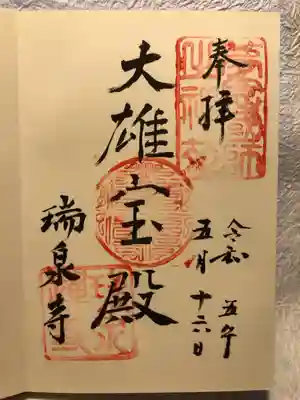 奉拝
令和五年
五月十六日
大雄宝殿
瑞泉寺